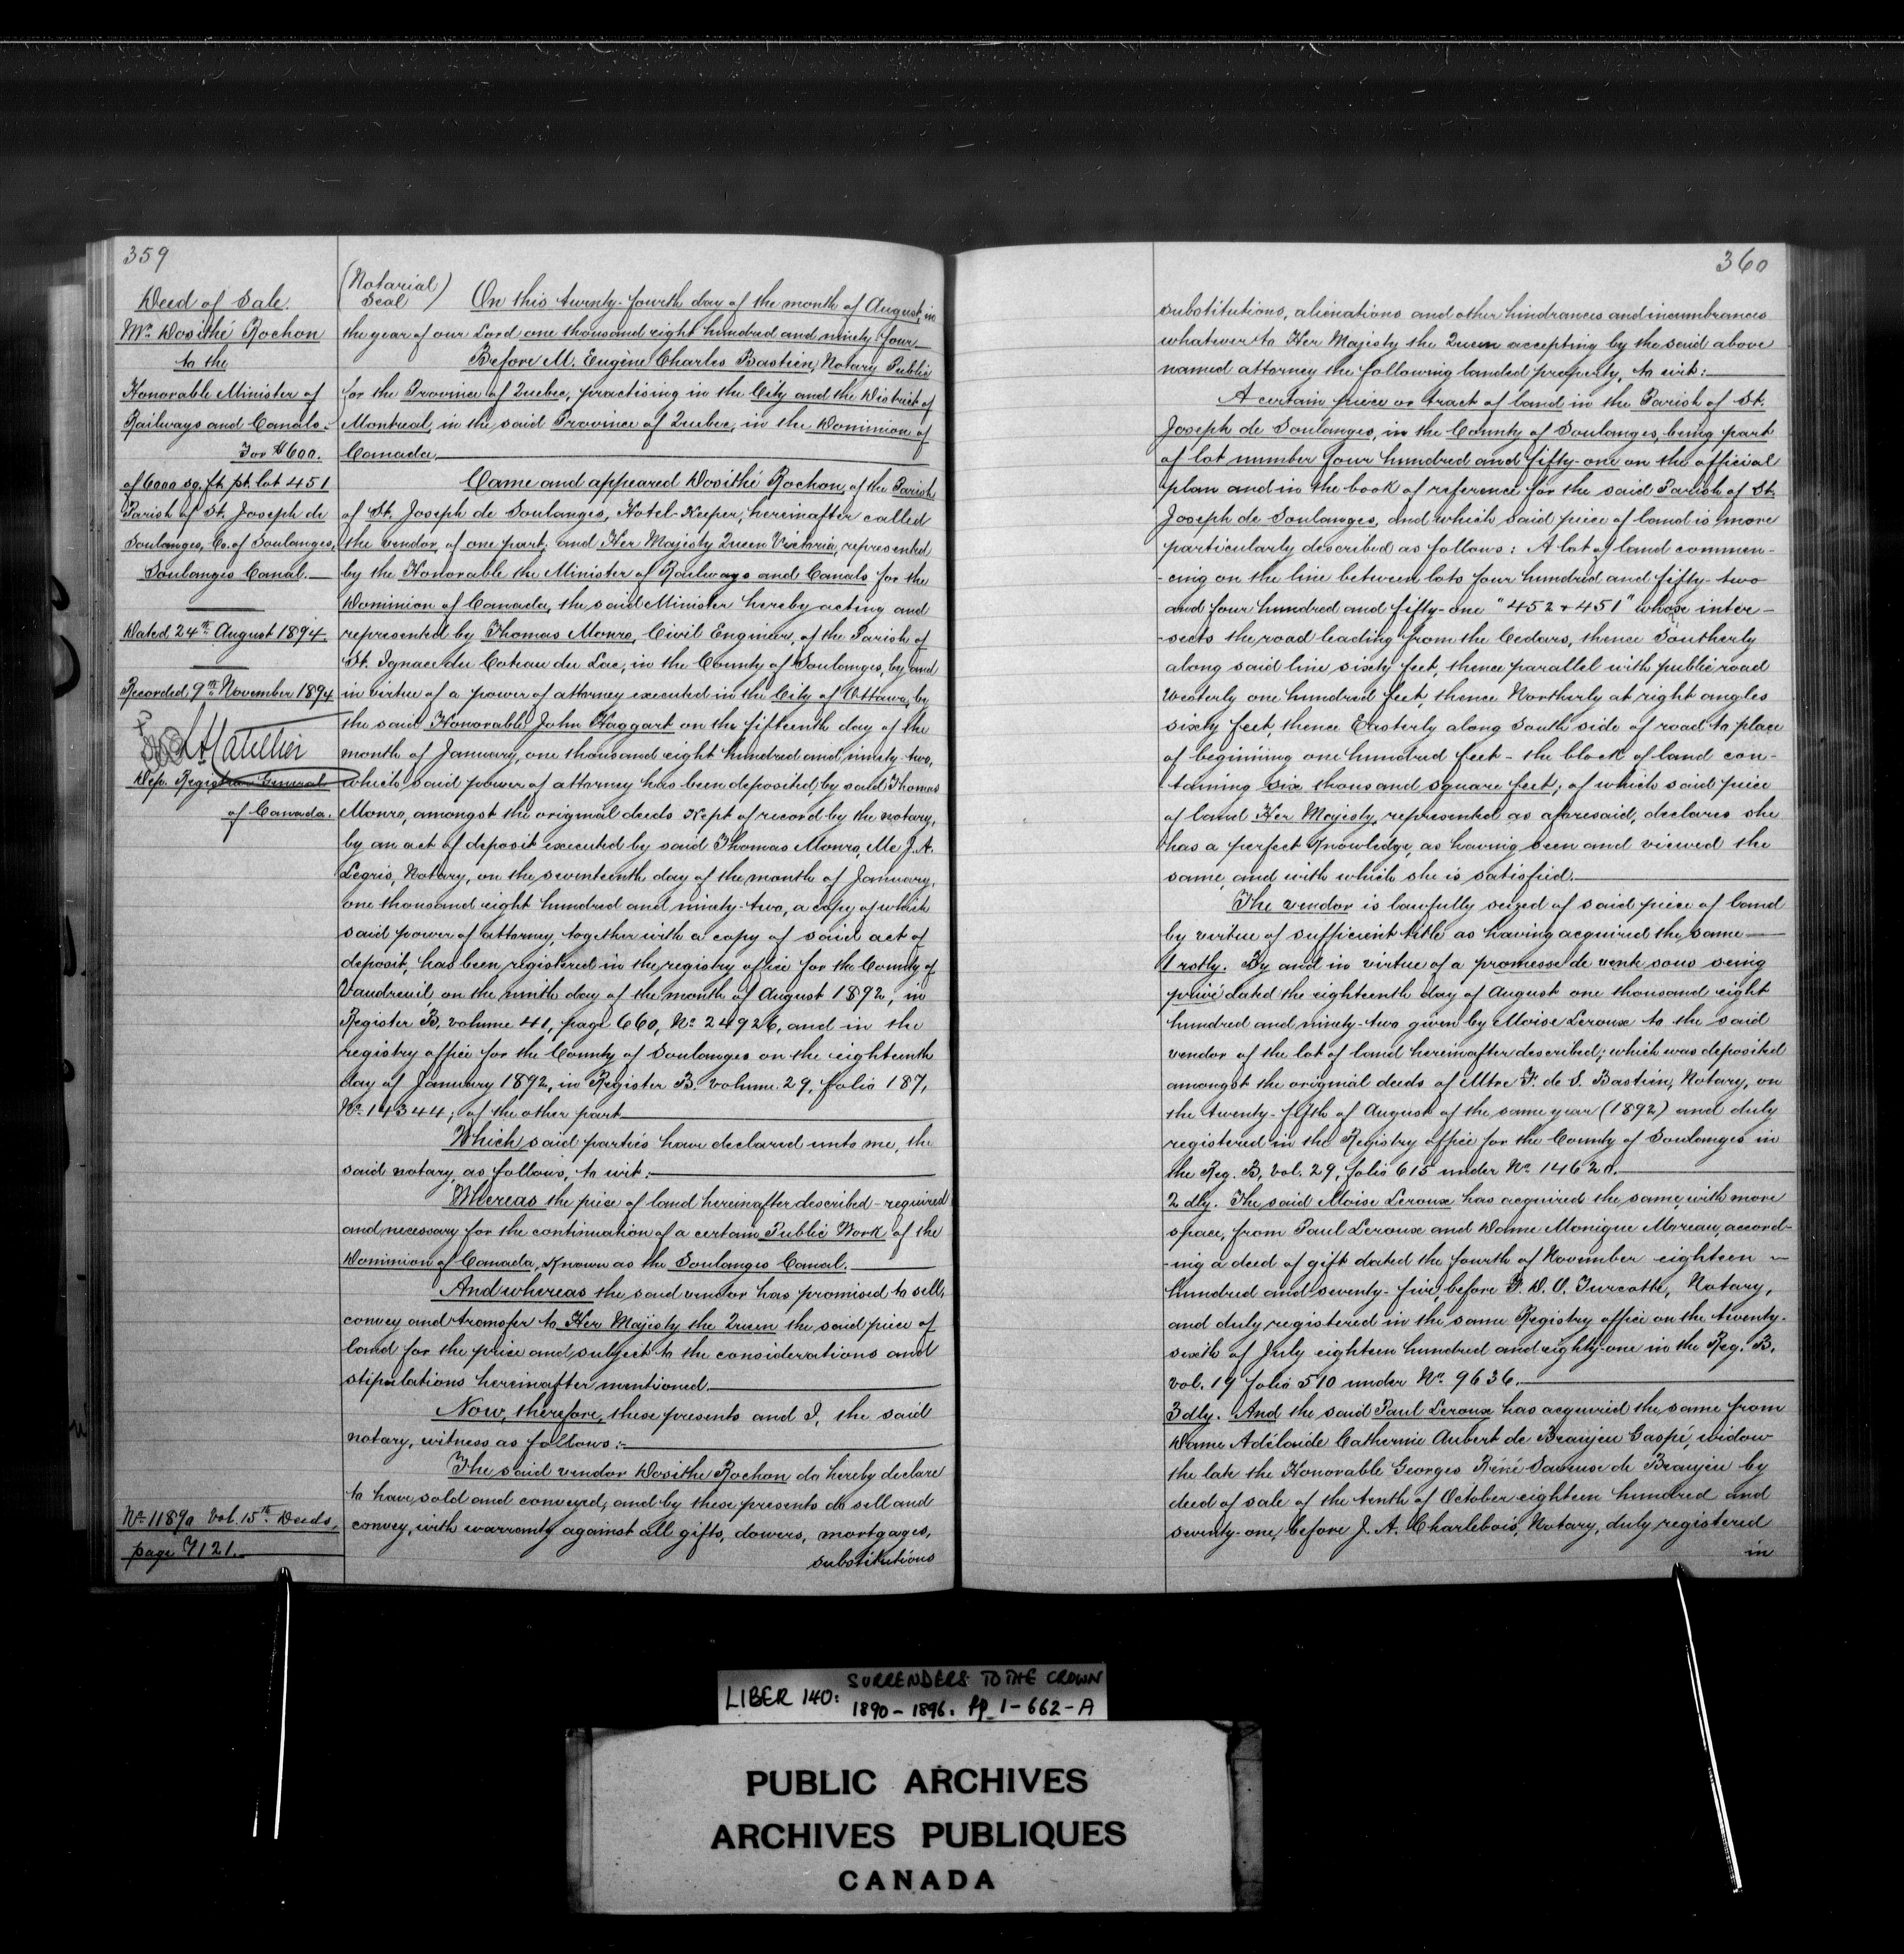 359
Deed of Sale.
Mr. Dosithé Rochon
to the
Honorable Minister of
Railways and Canals.
For $600.
of 6000 sq. ft. pt. lot 451
Parish of St. Joseph de
Soulanges, Co. of Soulanges,
Soulanges Canal.
Dated 24th August 1894.
Recorded 9th November 1894
Dep. Registrar General
of Canada.
No 11890 Vol. 15th Deeds,
page 7121.
(Notarial Seal) On this twenty-fourth day of the month of August, in
the year of our Lord one thousand eight hundred and ninety four
Before M. Eugène Charles Bastien, Notary Public
for the Province of Quebec, practising in the City and the District of
Montreal, in the said Province of Quebec, in the Dominion of
Canada.
Came and appeared Dosithé Rochon, of the Parish
of St. Joseph de Soulanges, Hotel-Keeper, hereinafter called
the vendor, of one part; and Her Majesty Queen Victoria, represented
by the Honorable the Minister of Railways and Canals for the
Dominion of Canada, the said Minister hereby acting and
represented by Thomas Monro, Civil Engineer, of the Parish of
St. Ignace du Coteau du Lac, in the County of Soulanges, by and
in virtue of a power of attorney executed in the City of Ottawa, by
the said Honorable John Haggart on the fifteenth day of the
month of January, one thousand eight hundred and ninety-two,
which said power of attorney has been deposited, by said Thomas
Monro, amongst the original deeds kept of record by the notary,
by an act of deposit executed by said Thomas Monro, Me J. A.
Legris, Notary, on the seventeenth day of the month of January,
one thousand eight hundred and ninety-two, a copy of which
said power of attorney, together with a copy of said act of
deposit, has been registered in the registry office for the County of
Vaudreuil, on the ninth day of the month of August 1892, in
Register B, volume 41, page 660, No 24926, and in the
registry office for the County of Soulanges on the eighteenth
day of January 1892, in Register B. volume 29, folio 187,
No 14344; of the other part
Which said parties have declared unto me, the
said notary, as follows, to wit:
Whereas the piece of land hereinafter described - required
and necessary for the continuation of a certain Public Work of the
Dominion of Canada, known as the Soulanges Canal.
And whereas the said vendor has promised to sell,
convey and transfer to Her Majesty the Queen the said piece of
land for the price and subject to the considerations and
stipulations hereinafter mentioned.
Now, therefore, these presents and I, the said
notary, witness as follows:-
The said vendor Dosithe Rochon do hereby declare
to have sold and conveyed, and by these presents do sell and
convey, with warranty against all gifts, dowers, mortgages,
substitutions
360
substitutions, alienations and other hindrances and incumbrances
whatever to Her Majesty the Queen accepting by the said above
named attorney the following landed property, to wit:
A certain piece or tract of land in the Parish of St.
Joseph de Soulanges, in the County of Soulanges, being part
of lot number four hundred and fifty-one on the official
plan and in the book of reference for the said Parish of St.
Joseph de Soulanges, and which said piece of land is more
particularly described as follows: A lot of land commen-
-cing on the line between lots four hundred and fifty-two
and four hundred and fifty-one "452 & 451" whose inter-
-sects the road leading from the Cedars, thence Southerly
along said line sixty feet, thence parallel with public road
Westerly one hundred feet, thence Northerly at right angles
sixty feet, thence Easterly along South side of road to place
of beginning one hundred feet - the block of land con-
-taining six thousand square feet; of which said piece
of land Her Majesty, represented as aforesaid, declares she
has a perfect knowledge, as having seen and viewed the
same, and with which she is satisfied.
The vendor is lawfully seized of said piece of land
by virtue of sufficient title as having acquired the same
1rstly. By and in virtue of a promesse de vente sous seing
privé dated the eighteenth day of August one thousand eight
hundred and ninety-two given by Moise Leroux to the said
vendor of the lot of land hereinafter described; which was deposited
amongst the original deeds of Mtre F. de S. Bastien, Notary, on
the twenty-fifth of August of the same year (1892) and duly
registered in the Registry office for the County of Soulanges in
the Reg. B, Vol. 29, folio 615 under No
2dly. The said Moise Leroux has acquired the same, with more
space, from Paul Leroux and Dame Monique Moreau, accord-
-ing a deed of gift dated the fourth of November eighteen
hundred and seventy-five, before F. D. O. Turcotte, Notary,
and duly registered in the same Registry office on the twenty-
sixth of July eighteen hundred and eighty-one in the Reg. B.
vol. 19 folio 510 under No 9636.
3dly. And the said Paul Leroux has acquired the same from
Dame Adélaide Catherine Aubert de Beaujeu Gaspé, widow
the late the Honorable Georges Réné Saveuse de Beaujeu by
deed of sale of the tenth of October eighteen hundred and
seventy-one, before J. A. Charlebois, Notary, duly registered
in
LIBER 140: SURRENDERS TO THE CROWN
1890-1896. pp 1-662-A
PUBLIC ARCHIVES
ARCHIVES PUBLIQUES
CANADA